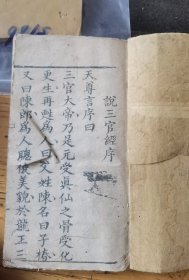 說三官經序
天尊言序曰
三官大帝乃是元受真仙之骨受化
更生再甦為人曰父姓陳名曰子椿
又曰陳郎為人聰俊美貌於龍王三